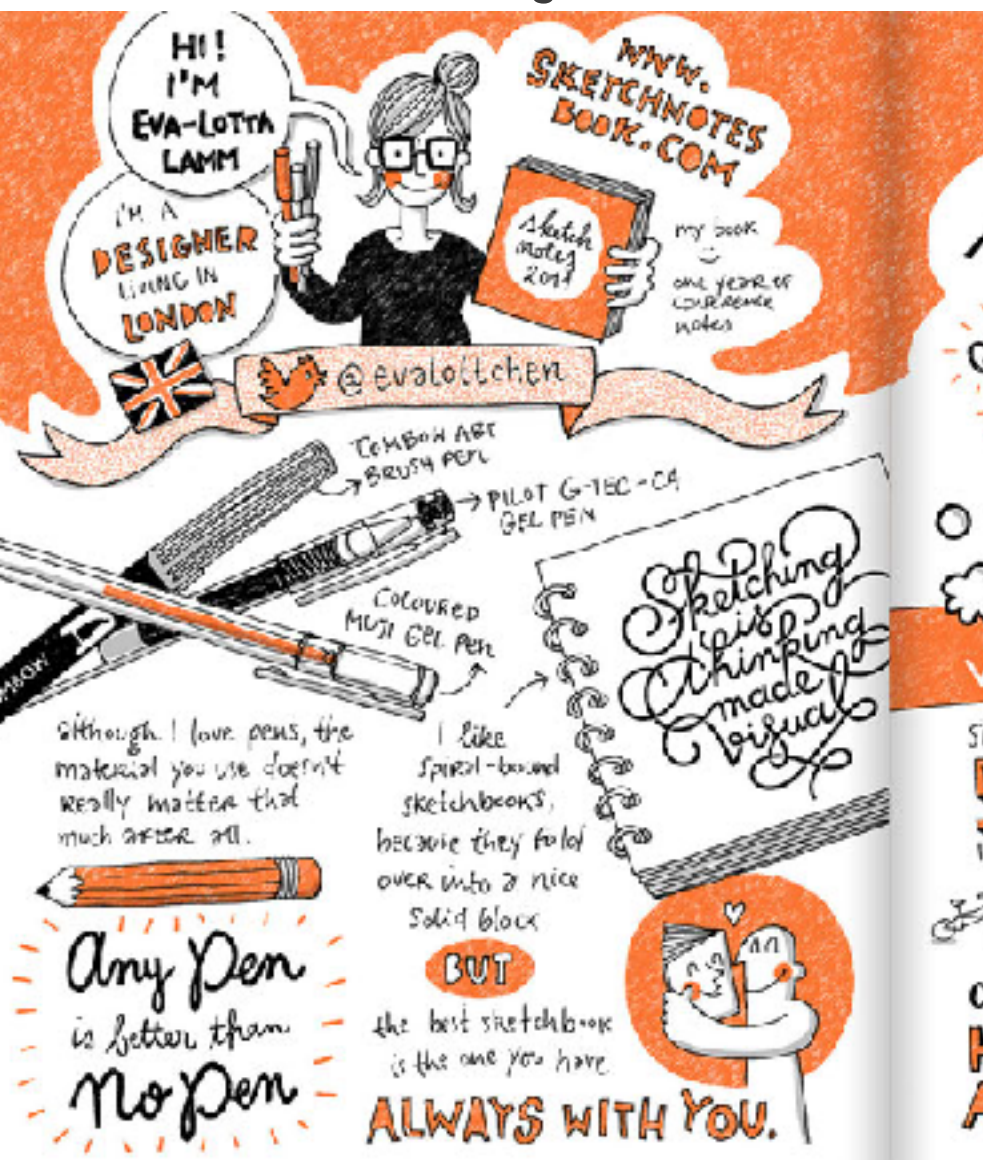 HI!
I'M
EVA-LOTTA
LAMM
I'M A
DESIGNER
LIVING IN
LONDON
WWW.
SKETCHNOTES
BOOK.COM
sketch
notes
2011
my book
:)
one year of
conference
notes
@evalottchen
TOMBOW ABT
BRUSH PEN
PILOT G-TEC-C4
GEL PEN
COLOURED
MUJI GEL PEN
TOMBOW
although I love pens, the
material you use doesn't
really matter that
much after all.
Any Pen
is better than
No Pen
I like
spiral-bound
sketchbooks,
because they fold
over into a nice
solid block
BUT
the best sketchbook
is the one you have
ALWAYS WITH YOU.
Sketching
is
thinking
made
visual